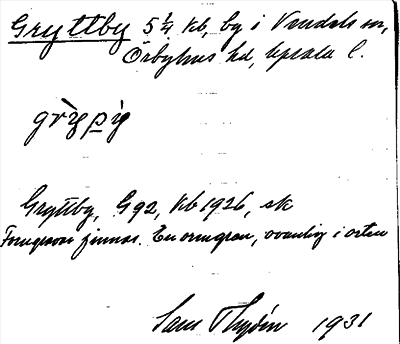 Gryttby 5 1/4 kb, by i Vendels sn,
Örbyhus hd, Upsala l.
grỳpìg
Gryttby, G 92, kb 1926, sk
Forngravar finnas. En ormgrav, ovanlig i orten
Sam Thyén 1931